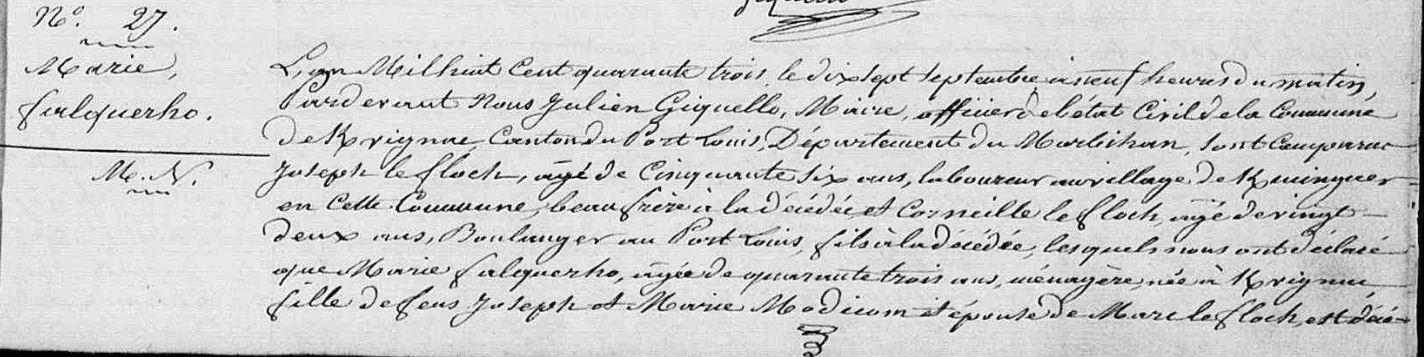 N.º 27.
Marie,
falquerho.
M. N.
L'an Mil huit Cent quarante trois le dix sept septembre à neuf heures du matin,
Pardevant Nous Julien Giquello, Maire, officier de l'état Civil de la Commune
de Kvignac Canton du Port Louis, Département du Morbihan, sont Comparus
Joseph le floch, âgé de Cinquante six ans, laboureur au village de
en Cette Commune, beau frère à la décédée et Corneille le floch, âgé de vingt
deux ans, Boulanger au Port Louis, fils à la décédée, lesquels nous ont déclaré
que Marie falquerho, âgée de quarante trois ans, ménagère née à Kvignac,
fille de feus Joseph et Marie Modicom et épouse de Marc le floch, est décé-